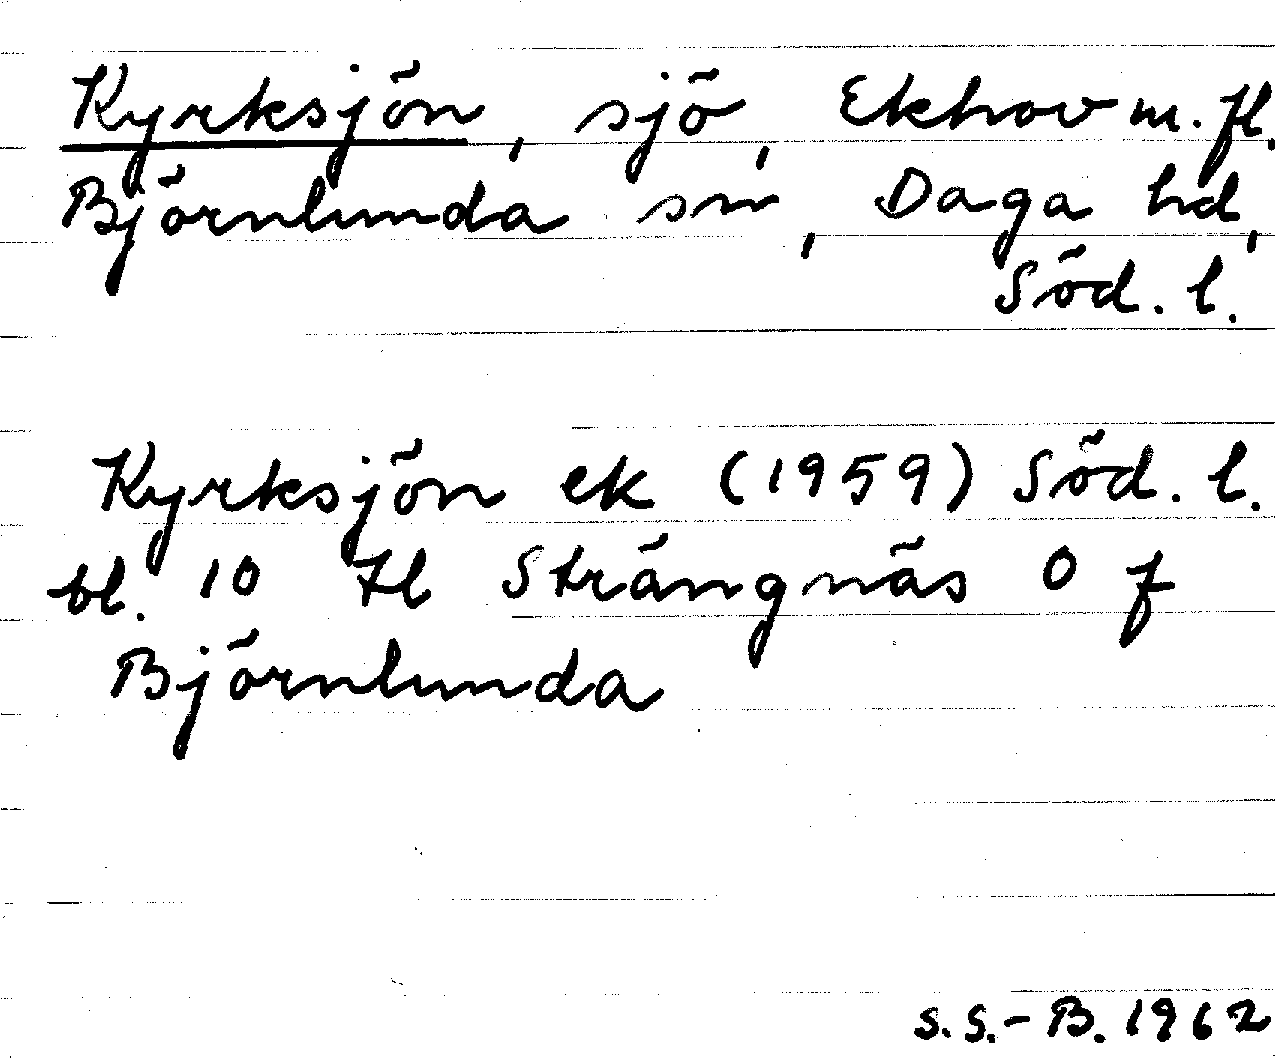 Kyrksjön, sjö, Ekhov m. fl.
Björnlunda sn, Daga hd,
Söd. l.
Kyrksjön ek (1959) Söd. l.
bl. 10 tl Strängnäs O f
Björnlunda
S.S.-B. 1962